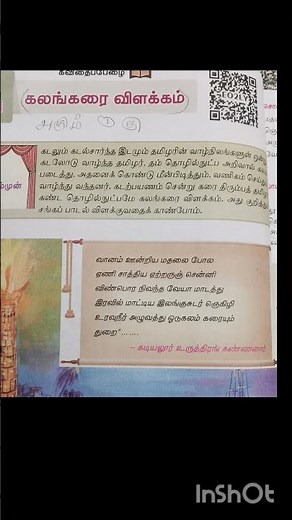 கவிதைப்பேழை
கலங்கரை விளக்கம்
கடலும் கடல்சார்ந்த இடமும் தமிழரின் வாழ்நிலங்களுள் ஒன்று.
கடலோடு வாழ்ந்த தமிழர், தம் தொழில்நுட்ப அறிவால்
படைத்து, அதனைக் கொண்டு மீன்பிடித்தும். வணிகம் செய்தும்
வாழ்ந்து வந்தனர். கடற்பயணம் சென்று கரை திரும்பத்
கண்ட தொழில்நுட்பமே கலங்கரை விளக்கம். அது குறித்து
சங்கப் பாடல் விளக்குவதைக் காண்போம்.
வானம் ஊன்றிய மதலை போல
ஏணி சாத்திய ஏற்றருஞ் சென்னி
விண்பொர நிவந்த வேயா மாடத்து
இரவில் மாட்டிய இலங்குசுடர் ஞெகிழி
உரவுநீர் அழுவத்து ஓடுகலம் கரையும்
துறை".......
– கடியலூர் உருத்திரங் கண்ணனார்
InShOt